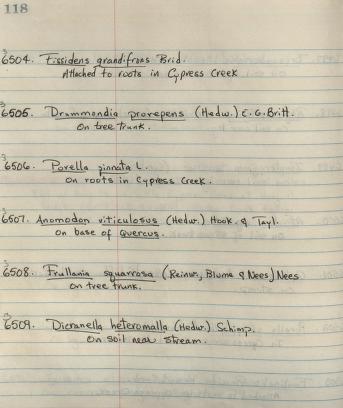 118
6504. Fissidens grandifrons Brid.
Attached to roots in Cypress Creek
6505. Drummondia prorepens (Hedw.) E.G. Britt.
on tree trunk.
6506. Porella pinnata L.
on roots in Cypress Creek.
6507. Anomodon viticulosus (Hedw.) Hook. & Tayl.
on base of Quercus.
6508. Frullania squarrosa (Reinw, Blume & Nees) Nees
on tree trunk.
6509. Dicranella heteromalla (Hedw.) Schimp.
on soil near stream.